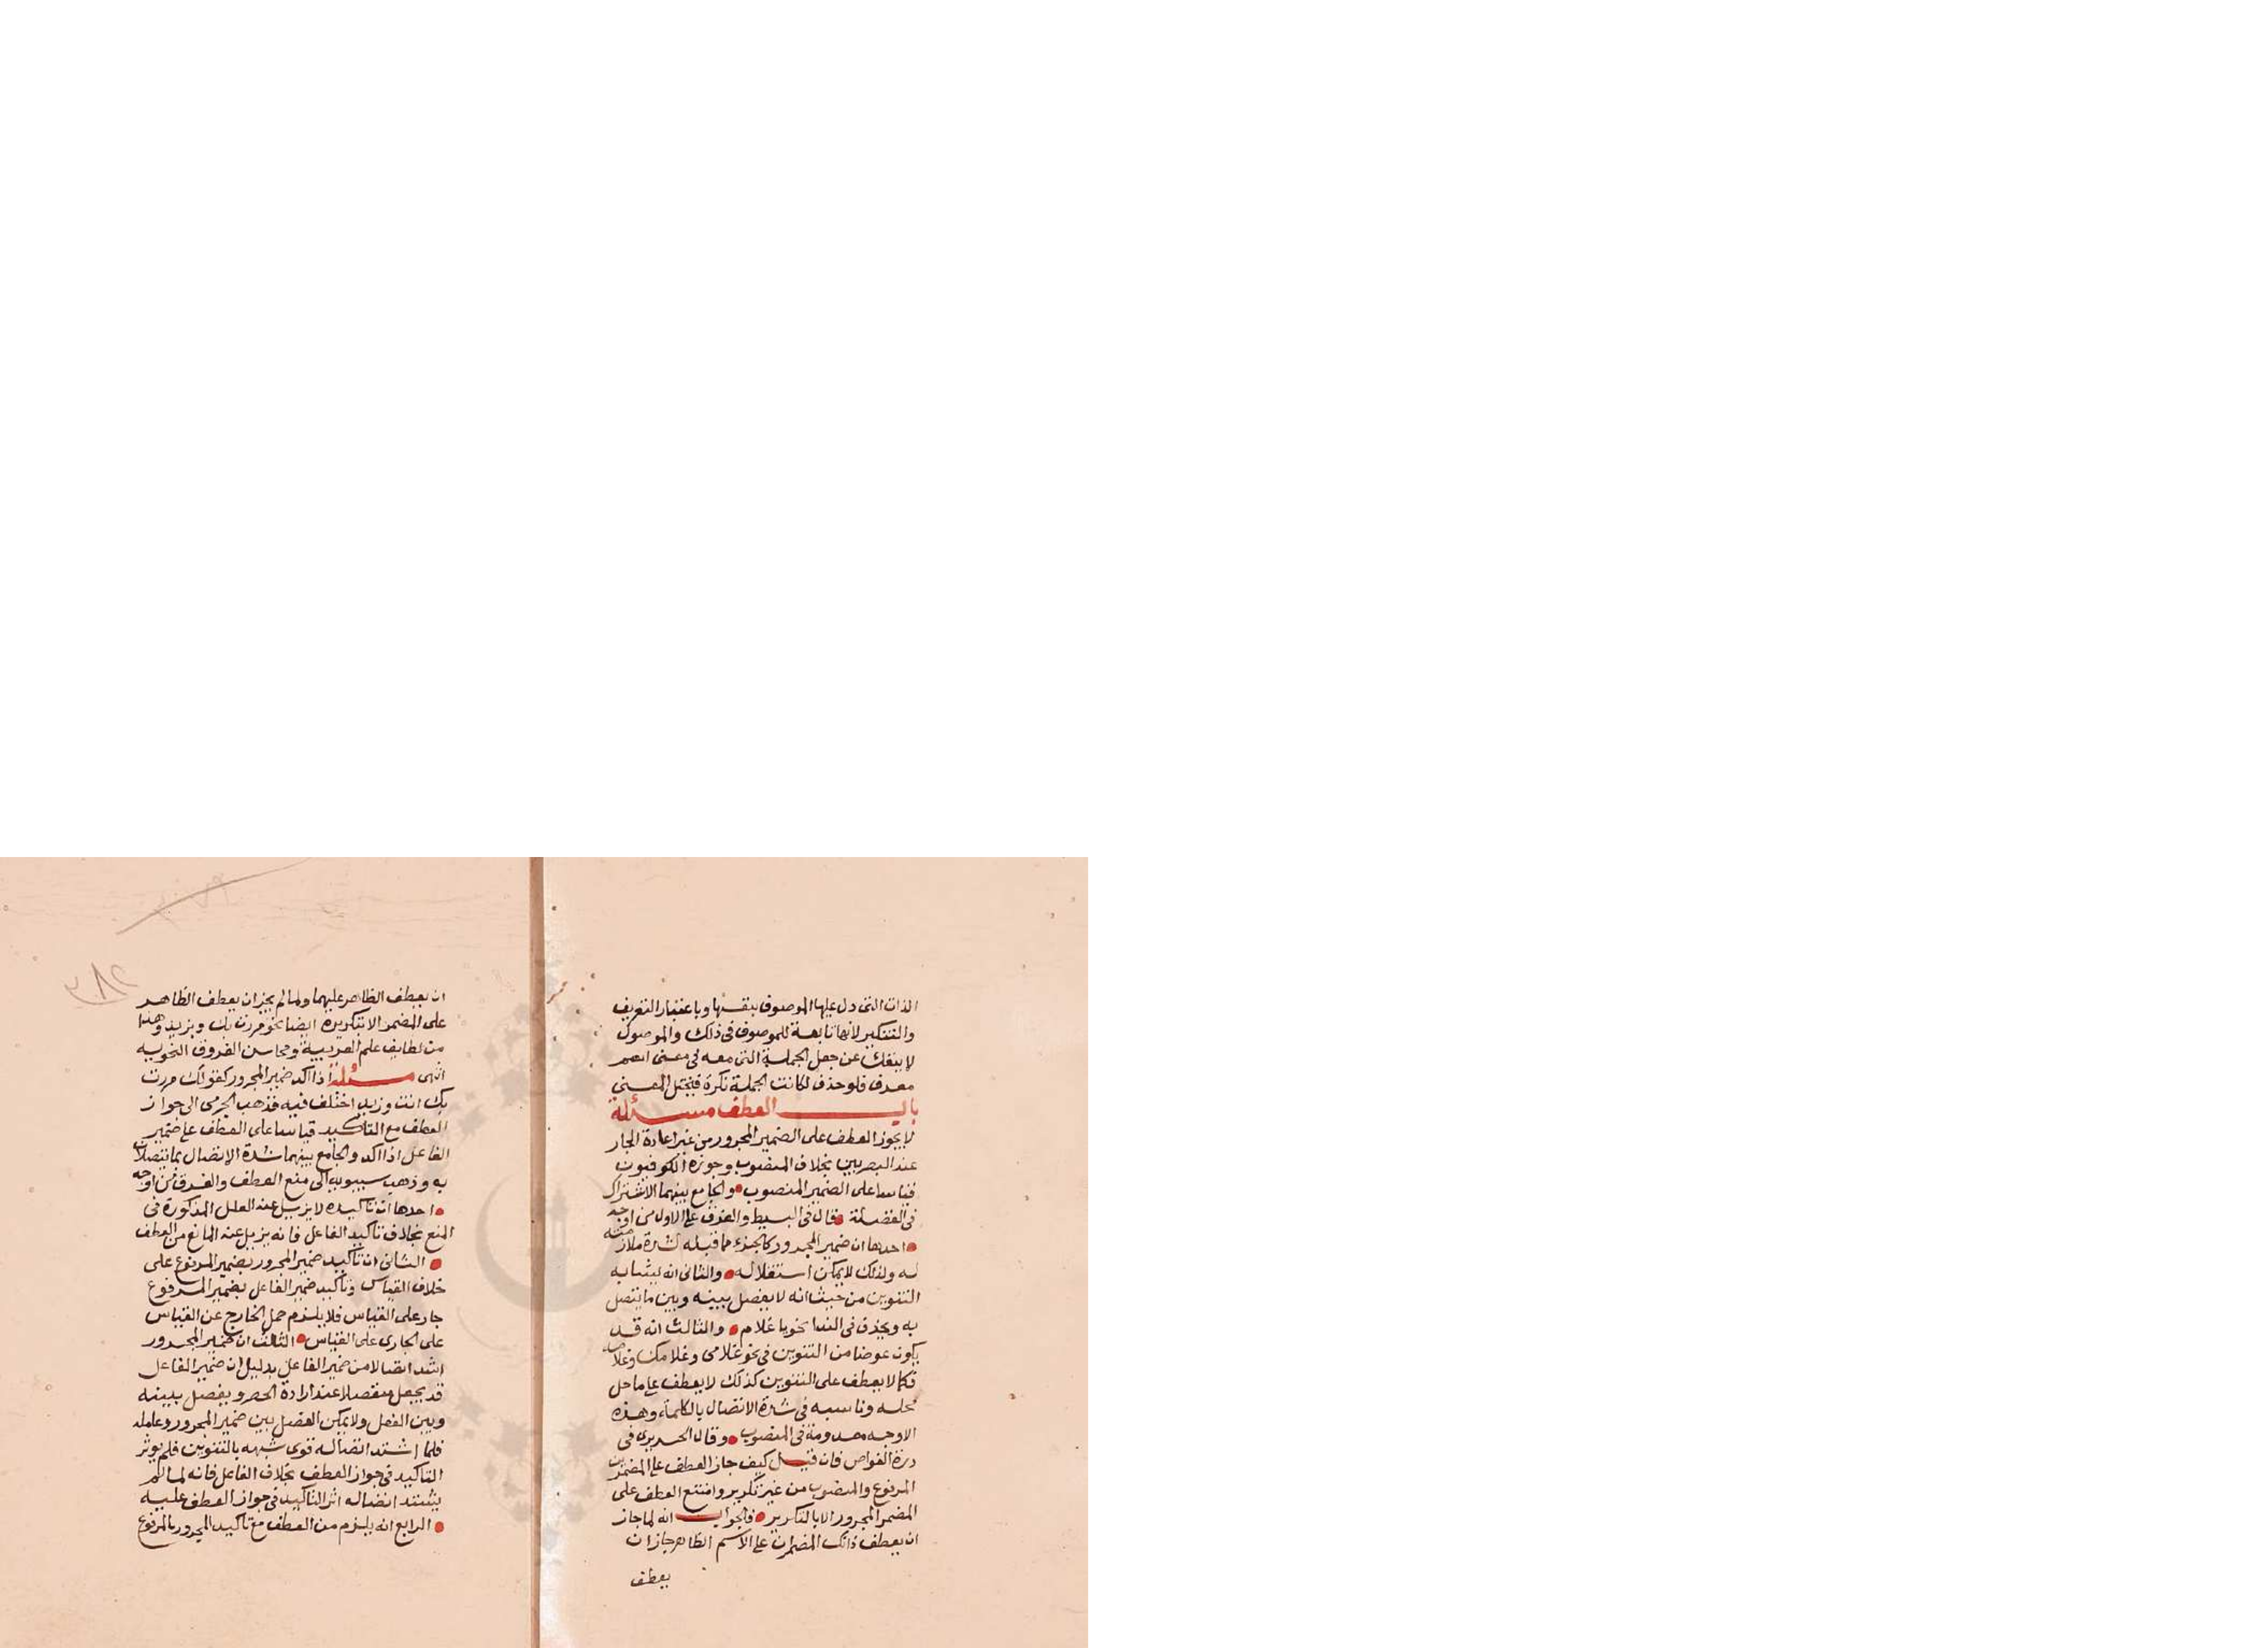 الذات التى دل عليها الموصوف بنفسها وباعتبار التعريف
والتنكير لانها تابعة للموصوف فى ذلك والموصول
لا ينفك عن جعل الجملة التى معه فى معنى اسم
معرف فلو حذف لكانت الجملة نكرة فيختل المعنى
باب العطف مسئلة
لا يجوز العطف على الضمير المجرور من غير اعادة الجار
عند البصريين بخلاف المنصوب وجوزه الكوفيون
قياسا على الضمير المنصوب والجامع بينهما الاشتراك
فى الفضلة قال فى البسيط والفرق على الاول من اوجه
احدها ان ضمير المجرور كالجزء مما قبله لشدة ملازمته
له ولذلك لا يمكن استقلاله والثانى انه يشابه
التنوين من حيث انه لا يفصل بينه وبين ما يتصل
به ويحذف فى الندا نحو يا غلام والثالث انه قد
يكون عوضا من التنوين فى نحو غلامى وغلامك وغلامه
فكما لا يعطف على التنوين كذلك لا يعطف على ما حل
محله وناسبه فى شدة الاتصال بالكلمة وهذه
الاوجه معدومة فى المنصوب وقال الحريرى فى
درة الغواص فان قيل كيف جاز العطف على المضمرين
المرفوع والمنصوب من غير تكرير وامتنع العطف على
المضمر المجرور الا بالتكرير فالجواب انه لما جاز
ان يعطف ذانك المضمران على الاسم الظاهر جاز ان
يعطف
ان يعطف الظاهر عليهما ولما لم يجز ان يعطف الظاهر
على المضمر الا بتكريره ايضا نحو مررت بك وبزيد وهذا
من لطايف علم العربية ومحاسن الفروق النحويه
انتهى مسئلة اذا اكد ضمير المجرور كقولك مررت
بك انت وزيد اختلف فيه فذهب الجرمى الى جواز
العطف مع التاكيد قياسا على العطف على ضمير
الفاعل اذا اكد والجامع بينهما شدة الاتصال بما يتصلان
به وذهب سيبويه الى منع العطف والفرق من اوجه
احدها ان تاكيده لا يزيل عنه العلل المذكورة فى
المنع بخلاف تاكيد الفاعل فانه يزيل عنه المانع من العطف
الثانى ان تاكيد ضمير المجرور بضمير المرفوع على
خلاف القياس وتاكيد ضمير الفاعل بضمير المرفوع
جار على القياس فلا يلزم حمل الخارج عن القياس
على الجارى على القياس الثالث ان ضمير المجرور
اشد اتصالا من ضمير الفاعل بدليل ان ضمير الفاعل
قد يجعل منفصلا عند ارادة الحصر ويفصل بينه
وبين الفعل ولا يمكن الفصل بين ضمير المجرور وعامله
فلما اشتد اتصاله قوى شبهه بالتنوين فلم يوثر
التاكيد فى جواز العطف بخلاف الفاعل فانه لما لم
يشتد اتصاله اثر التاكيد فى جواز العطف عليه
الرابع انه يلزم من العطف مع تاكيد المجرور بالمرفوع